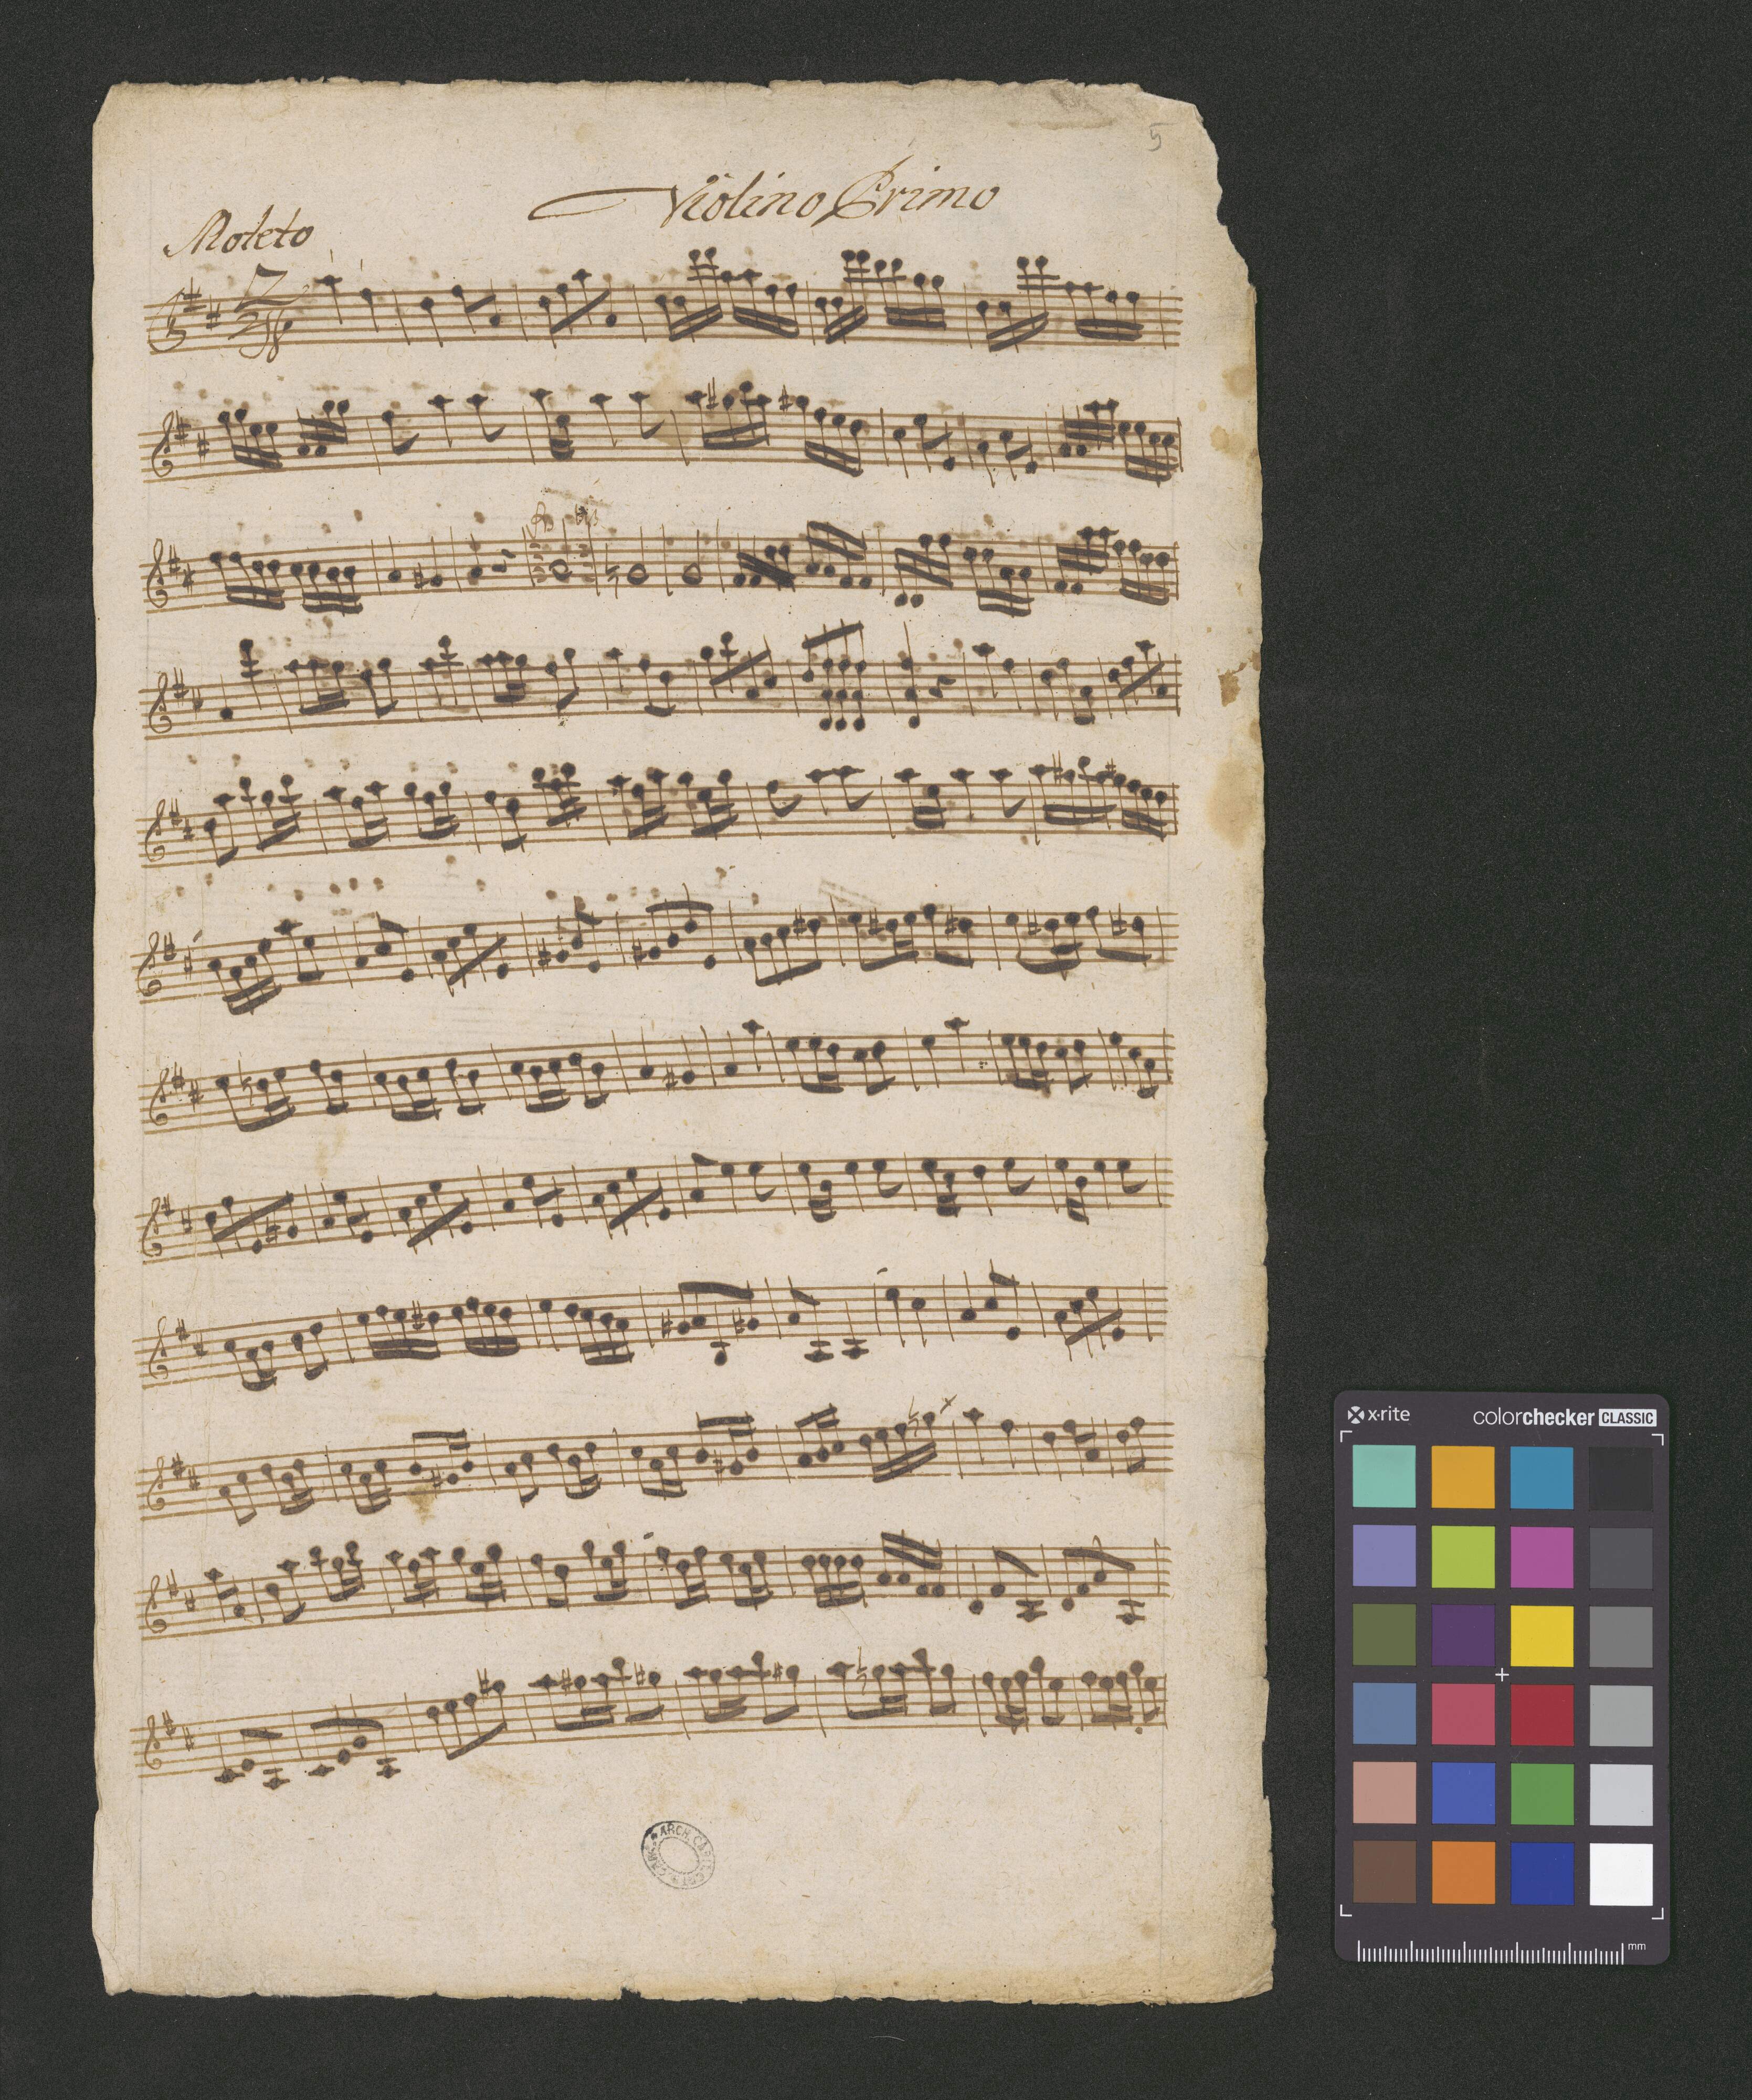 5
Violino Primo
Moteto
bis
ARCH. CA
x-rite
colorchecker CLASSIC
mm